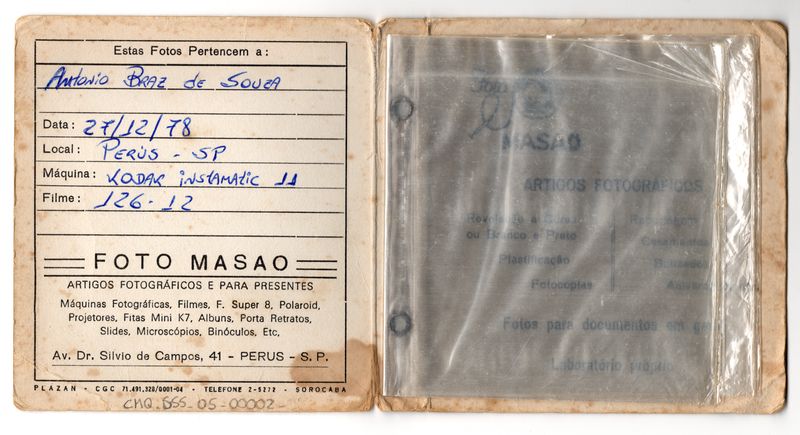 Estas Fotos Pertencem a :
Antonio Braz de Souza
Data : 27/12/78
Local : Perús - SP
Máquina : Kodak instamatic 11
Filme : 126-12
FOTO MASAO
ARTIGOS FOTOGRÁFICOS E PARA PRESENTES
Máquinas Fotográficas, Filmes, F. Super 8, Polaroid,
Projetores, Fitas Mini K7, Albuns, Porta Retratos,
Slides, Microscópios, Binóculos, Etc,
Av. Dr. Silvio de Campos, 41 - PERUS - S. P.
PLAZAN - CGC 71.491.328/0001-04 - TELEFONE 2-5272 - SOROCABA
CMQ.BSS.05-00002-
Foto
MASAO
ARTIGOS FOTOGRÁFICOS
Revelação a Cores
ou Branco e Preto
Plastificação
Fotocópias
Reportagens
Casamentos
Batizados
Fotos para documentos em geral
Laboratório próprio